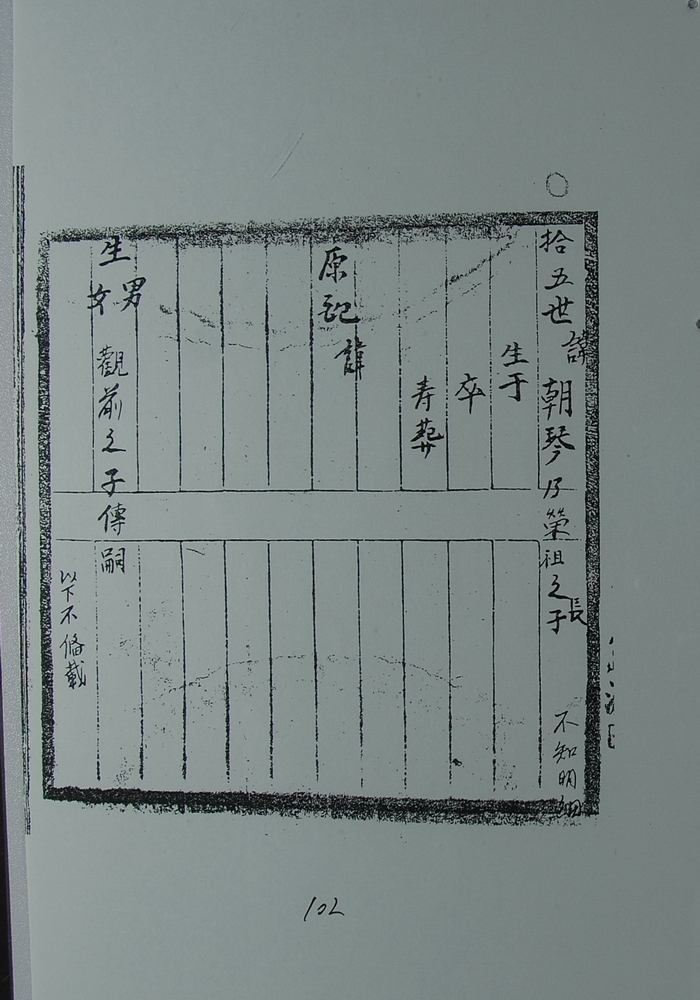 拾五世諱朝琴乃荣祖之長子 不知明細
生于
卒
寿葬
原配 諱
生男
女
觀前之子傳嗣
以下不俻載
102